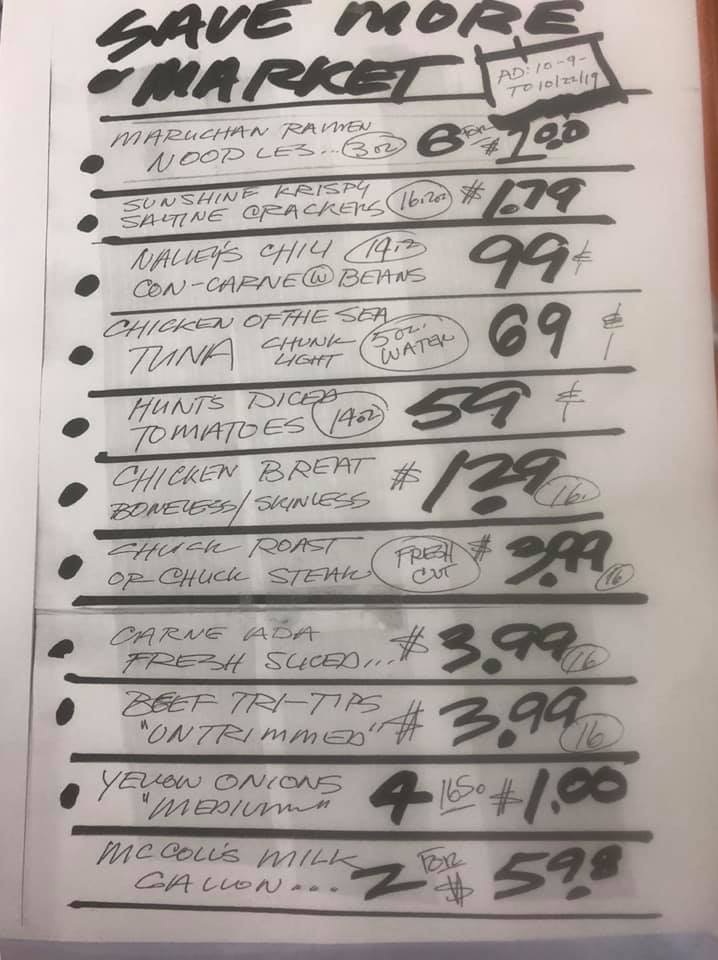 SAVE MORE
MARKET
AD: 10-9-
TO 10/22/19
MARUCHAN RAMEN
NOODLES... 3 oz 6 FOR $1.00
SUNSHINE KRISPY
SALTINE CRACKERS 16.2oz $1.79
NALLEY'S CHILI 14oz
CON-CARNE W BEANS 99¢
CHICKEN OF THE SEA
TUNA CHUNK LIGHT 5 oz. WATER 69¢
HUNTS DICED
TOMATOES 14oz 59¢
CHICKEN BREAT
BONELESS/SKINLESS $1.29 lb.
CHUCK ROAST
OR CHUCK STEAK FRESH CUT $3.99 lb
CARNE ADA
FRESH SLICED... $3.99 lb
BEEF TRI-TIPS
"UNTRIMMED" $3.99 lb
YELLOW ONIONS
"MEDIUM" 4 $1.00
McCOLL'S MILK
GALLON... 2 FOR $59.8